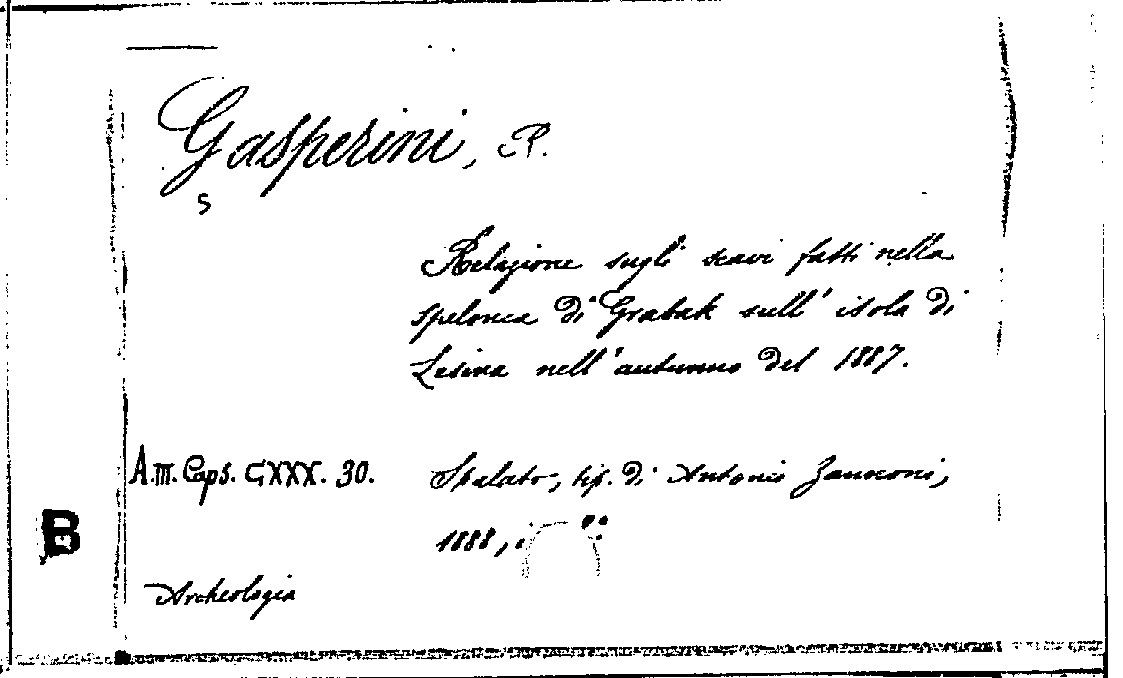 Gasperini, R.
S
Relazione sugli scavi fatti nella
spelonca di Grabak sull' isola di
Lesina nell' autunno del 1887.
A.m. Caps. CXXX. 30.
Spalato, tip. di Antonio Zannoni,
1888,
B
Archeologia